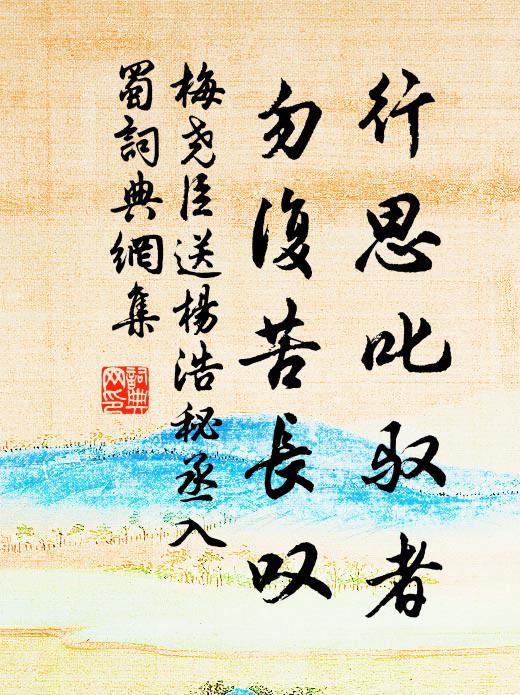 行思叱驭者
勿復苦長叹
梅尧臣送楊浩秘丞入
蜀詞典網集
詞典
网印